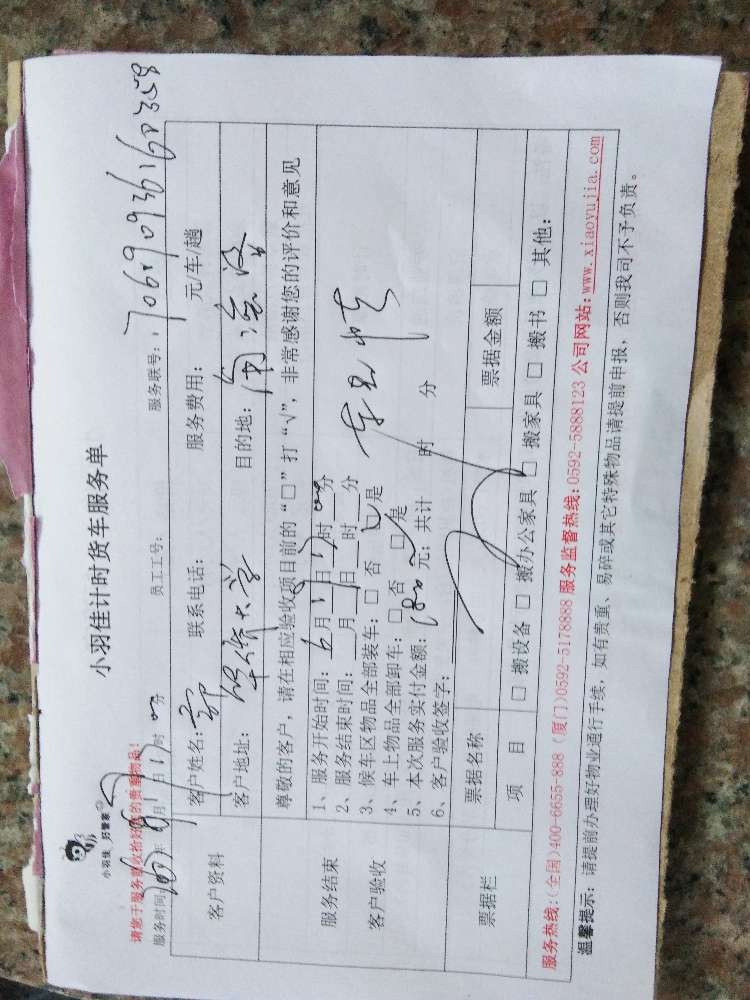 小羽佳 好管家
小羽佳计时货车服务单
请您于服务前收拾好您的贵重物品!
服务时间: 年 月 日 时 分 员工工号: 服务联号: 1706190936160358
客户资料
客户姓名: 郭 联系电话: 服务费用: 元/车/趟
客户地址: 华侨大学 目的地:
服务结束
客户验收
尊敬的客户，请在相应验收项目前的“□”打“√”，非常感谢您的评价和意见
1、服务开始时间: 6月 日 时 分
2、服务结束时间: 月 日 时 分
3、候车区物品全部装车: □ 否 □ 是
4、车上物品全部卸车: □ 否 □ 是
5、本次服务实付金额: 180 元; 共计 时 分
6、客户验收签字:
票据栏
票据名称 票据金额
项 目 □ 搬设备 □ 搬办公家具 □ 搬家具 □ 搬书 □ 其他:
服务热线:(全国)400-6655-888 (厦门)0592-5178888 服务监督热线:0592-5888123 公司网站:www.xiaoyujia.com
温馨提示: 请提前办理好物业通行手续，如有贵重、易碎或其它特殊物品请提前申报，否则我司不予负责。